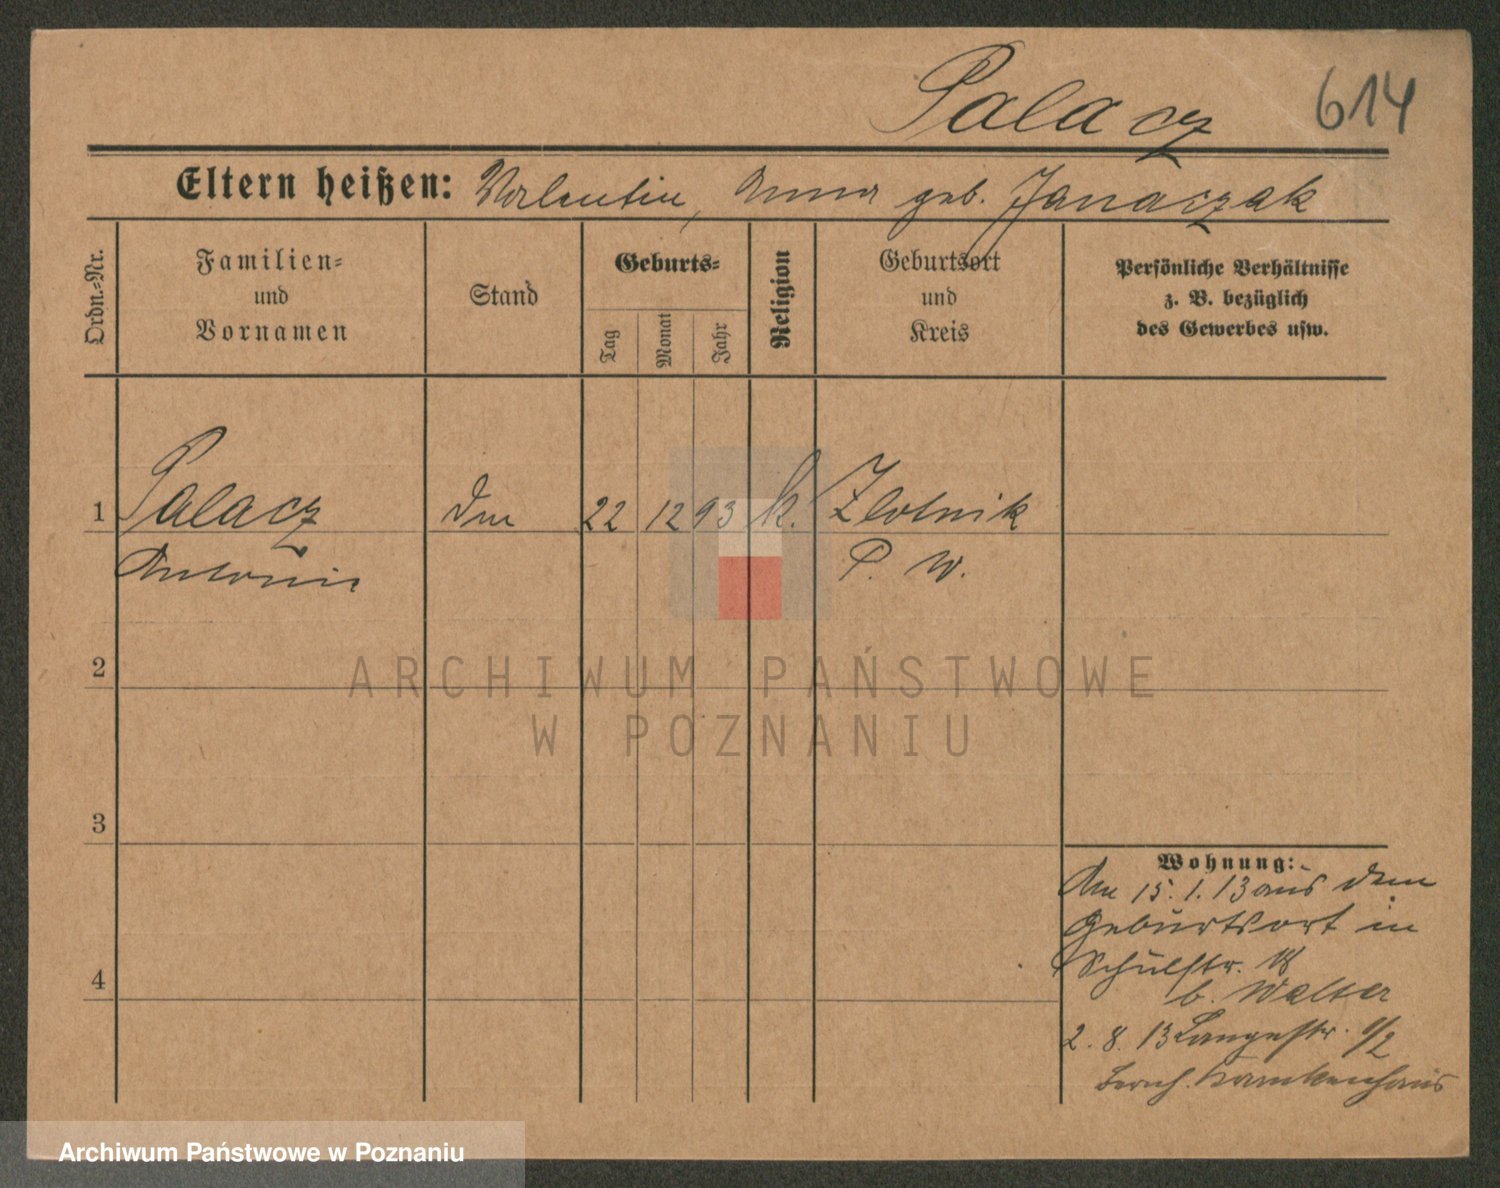 Palacz 614
Eltern heißen: Valentin, Anna geb. Janaczak
Ordn.-Nr.
Familien-
und
Vornamen
Stand
Geburts-
Tag
Monat
Jahr
Religion
Geburtsort
und
Kreis
Persönliche Verhältnisse
z. B. bezüglich
des Gewerbes usw.
1 Palacz 22 12 93 k. Zlotnik
Antonie P. W.
2
ARCHIWUM PAŃSTWOWE
W POZNANIU
3
Wohnung:
Am 15.1.13 aus dem
Geburtsort in
Schulstr. 18
4
b. Walter
2.8.13 Langestr. 1/2
Krankenhaus
Archiwum Państwowe w Poznaniu